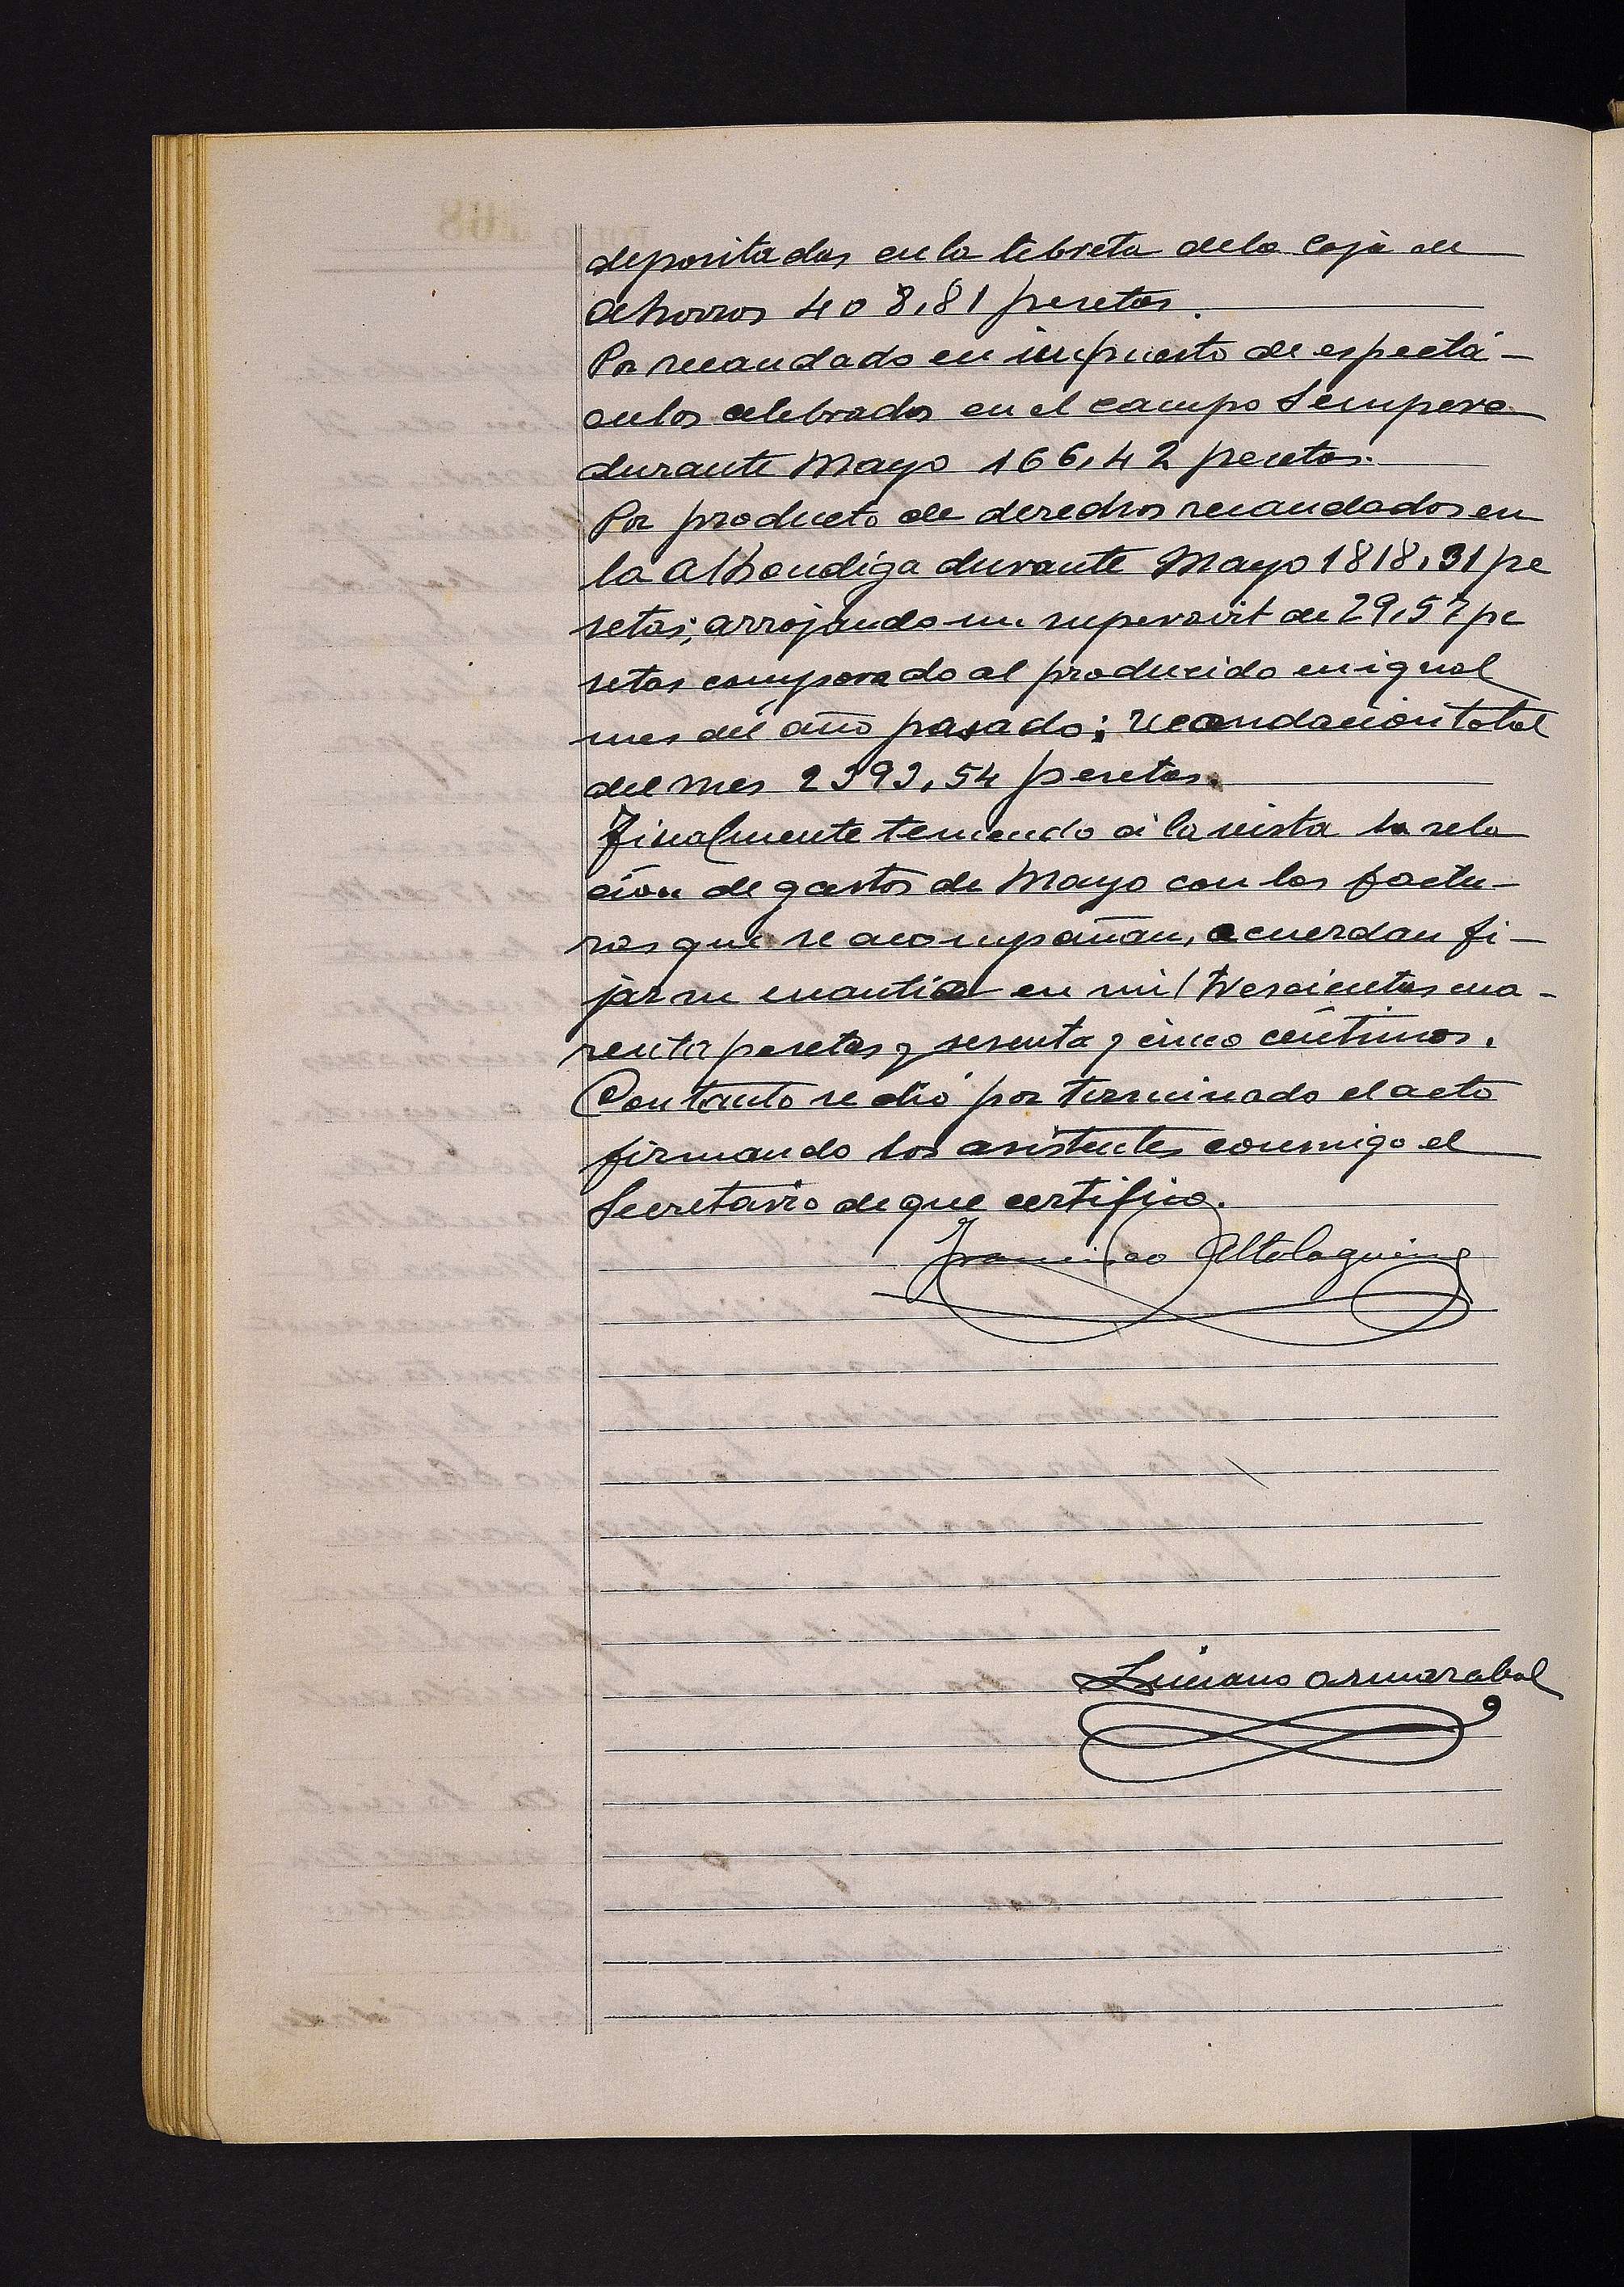 depositadas en la libreta de la Caja de
Ahorros 408,81 pesetas.
Por recaudado en impuesto de espectá-
culos celebrados en el campo Sempere
durante Mayo 166,42 pesetas.
Por producto de derechos recaudados en
la Alhondiga durante Mayo 1818,31 pe
setas; arrojando un superavit de 29,57 pe
setas comparado al producido en igual
mes del año pasado; recaudación total
del mes 2393,54 pesetas.
Finalmente teniendo á la vista la rela
ción de gastos de Mayo con las factu-
ras que se acompañan, acuerdan fi-
jar su cuantia en mil trescientas cua-
renta pesetas y sesenta y cinco céntimos.
Con tanto se dió por terminado el acto
firmando los asistentes conmigo el
Secretario de que certifico.
Francisco Altolaguirre
Luciano Armarabal